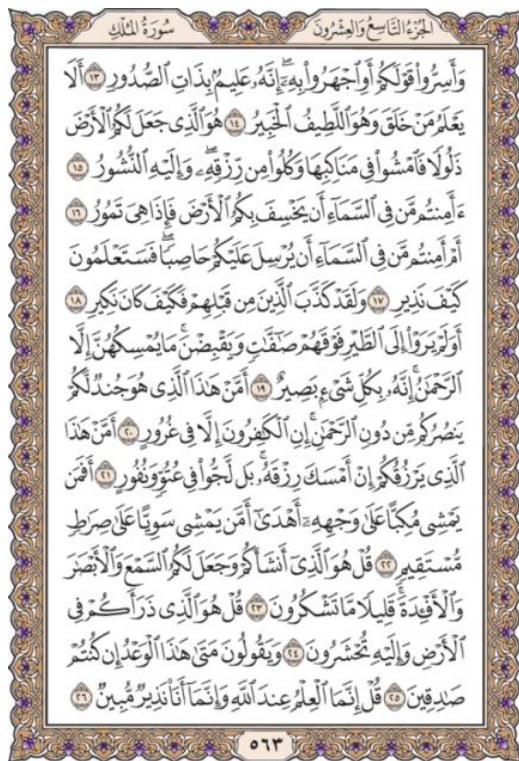 سُورَةُ المُلْكِ
الجُزْءُ التَّاسِعُ وَالعِشْرُونَ
وَأَسِرُّوا۟ قَوْلَكُمْ أَوِ ٱجْهَرُوا۟ بِهِۦٓ ۖ إِنَّهُۥ عَلِيمٌۢ بِذَاتِ ٱلصُّدُورِ ١٣ أَلَا
يَعْلَمُ مَنْ خَلَقَ وَهُوَ ٱللَّطِيفُ ٱلْخَبِيرُ ١٤ هُوَ ٱلَّذِى جَعَلَ لَكُمُ ٱلْأَرْضَ
ذَلُولًا فَٱمْشُوا۟ فِى مَنَاكِبِهَا وَكُلُوا۟ مِن رِّزْقِهِۦ ۖ وَإِلَيْهِ ٱلنُّشُورُ ١٥
ءَأَمِنتُم مَّن فِى ٱلسَّمَآءِ أَن يَخْسِفَ بِكُمُ ٱلْأَرْضَ فَإِذَا هِىَ تَمُورُ ١٦
أَمْ أَمِنتُم مَّن فِى ٱلسَّمَآءِ أَن يُرْسِلَ عَلَيْكُمْ حَاصِبًا ۖ فَسَتَعْلَمُونَ
كَيْفَ نَذِيرِ ١٧ وَلَقَدْ كَذَّبَ ٱلَّذِينَ مِن قَبْلِهِمْ فَكَيْفَ كَانَ نَكِيرِ ١٨
أَوَلَمْ يَرَوْا۟ إِلَى ٱلطَّيْرِ فَوْقَهُمْ صَٰٓفَّٰتٍ وَيَقْبِضْنَ ۚ مَا يُمْسِكُهُنَّ إِلَّا
ٱلرَّحْمَٰنُ ۚ إِنَّهُۥ بِكُلِّ شَىْءٍۭ بَصِيرٌ ١٩ أَمَّنْ هَٰذَا ٱلَّذِى هُوَ جُندٌ لَّكُمْ
يَنصُرُكُم مِّن دُونِ ٱلرَّحْمَٰنِ ۚ إِنِ ٱلْكَٰفِرُونَ إِلَّا فِى غُرُورٍ ٢٠ أَمَّنْ هَٰذَا
ٱلَّذِى يَرْزُقُكُمْ إِنْ أَمْسَكَ رِزْقَهُۥ ۚ بَل لَّجُّوا۟ فِى عُتُوٍّ وَنُفُورٍ ٢١ أَفَمَن
يَمْشِى مُكِبًّا عَلَىٰ وَجْهِهِۦٓ أَهْدَىٰٓ أَمَّن يَمْشِى سَوِيًّا عَلَىٰ صِرَٰطٍ
مُّسْتَقِيمٍ ٢٢ قُلْ هُوَ ٱلَّذِىٓ أَنشَأَكُمْ وَجَعَلَ لَكُمُ ٱلسَّمْعَ وَٱلْأَبْصَٰرَ
وَٱلْأَفْـِٔدَةَ ۖ قَلِيلًا مَّا تَشْكُرُونَ ٢٣ قُلْ هُوَ ٱلَّذِى ذَرَأَكُمْ فِى
ٱلْأَرْضِ وَإِلَيْهِ تُحْشَرُونَ ٢٤ وَيَقُولُونَ مَتَىٰ هَٰذَا ٱلْوَعْدُ إِن كُنتُمْ
صَٰدِقِينَ ٢٥ قُلْ إِنَّمَا ٱلْعِلْمُ عِندَ ٱللَّهِ وَإِنَّمَآ أَنَا۠ نَذِيرٌ مُّبِينٌ ٢٦
٥٦٣